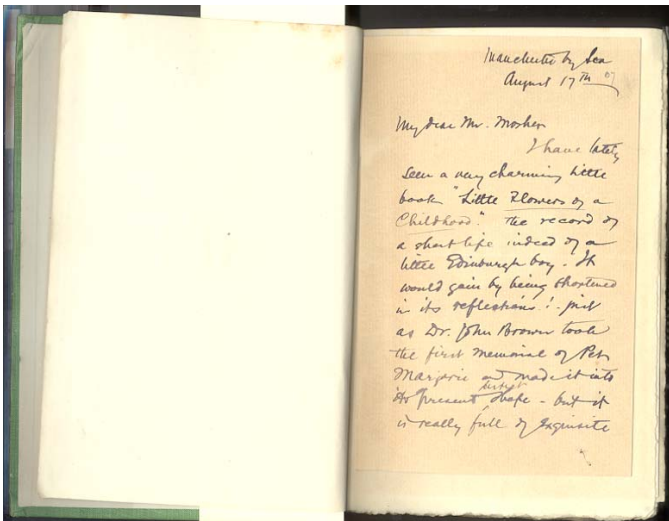 Manchester by Sea
August 17th 07
My dear Mr. Mosher
I have lately
seen a very charming little
book "Little Flowers of a
Childhood." The record of
a short life indeed of a
little Edinburgh boy. It
would gain by being shortened
in its reflections! - just
as Dr. John Brown took
the first memorial of Pet
Marjorie and made it into
its present shape - but it
is really full of exquisite